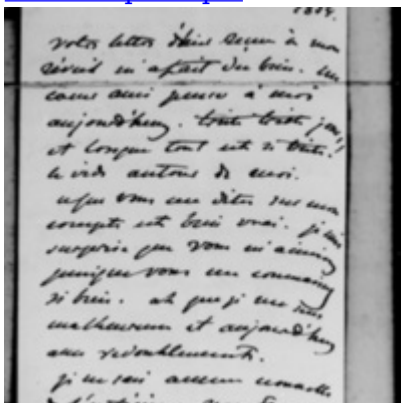 votre lettre chère
réveil m'a fait du bien. un
cœur ami pense à moi
aujourd'huy. triste triste jour!
et lorsque tout est si triste
le vide autour de moi.
ce que vous me dites sur mon
compte est bien vrai. je suis
surprise que vous m'aimiez
puisque vous me connaissez
si bien. ah que je me sens
malheureuse et aujourd'huy
avec redoublement.
je ne sais aucune nouvelle